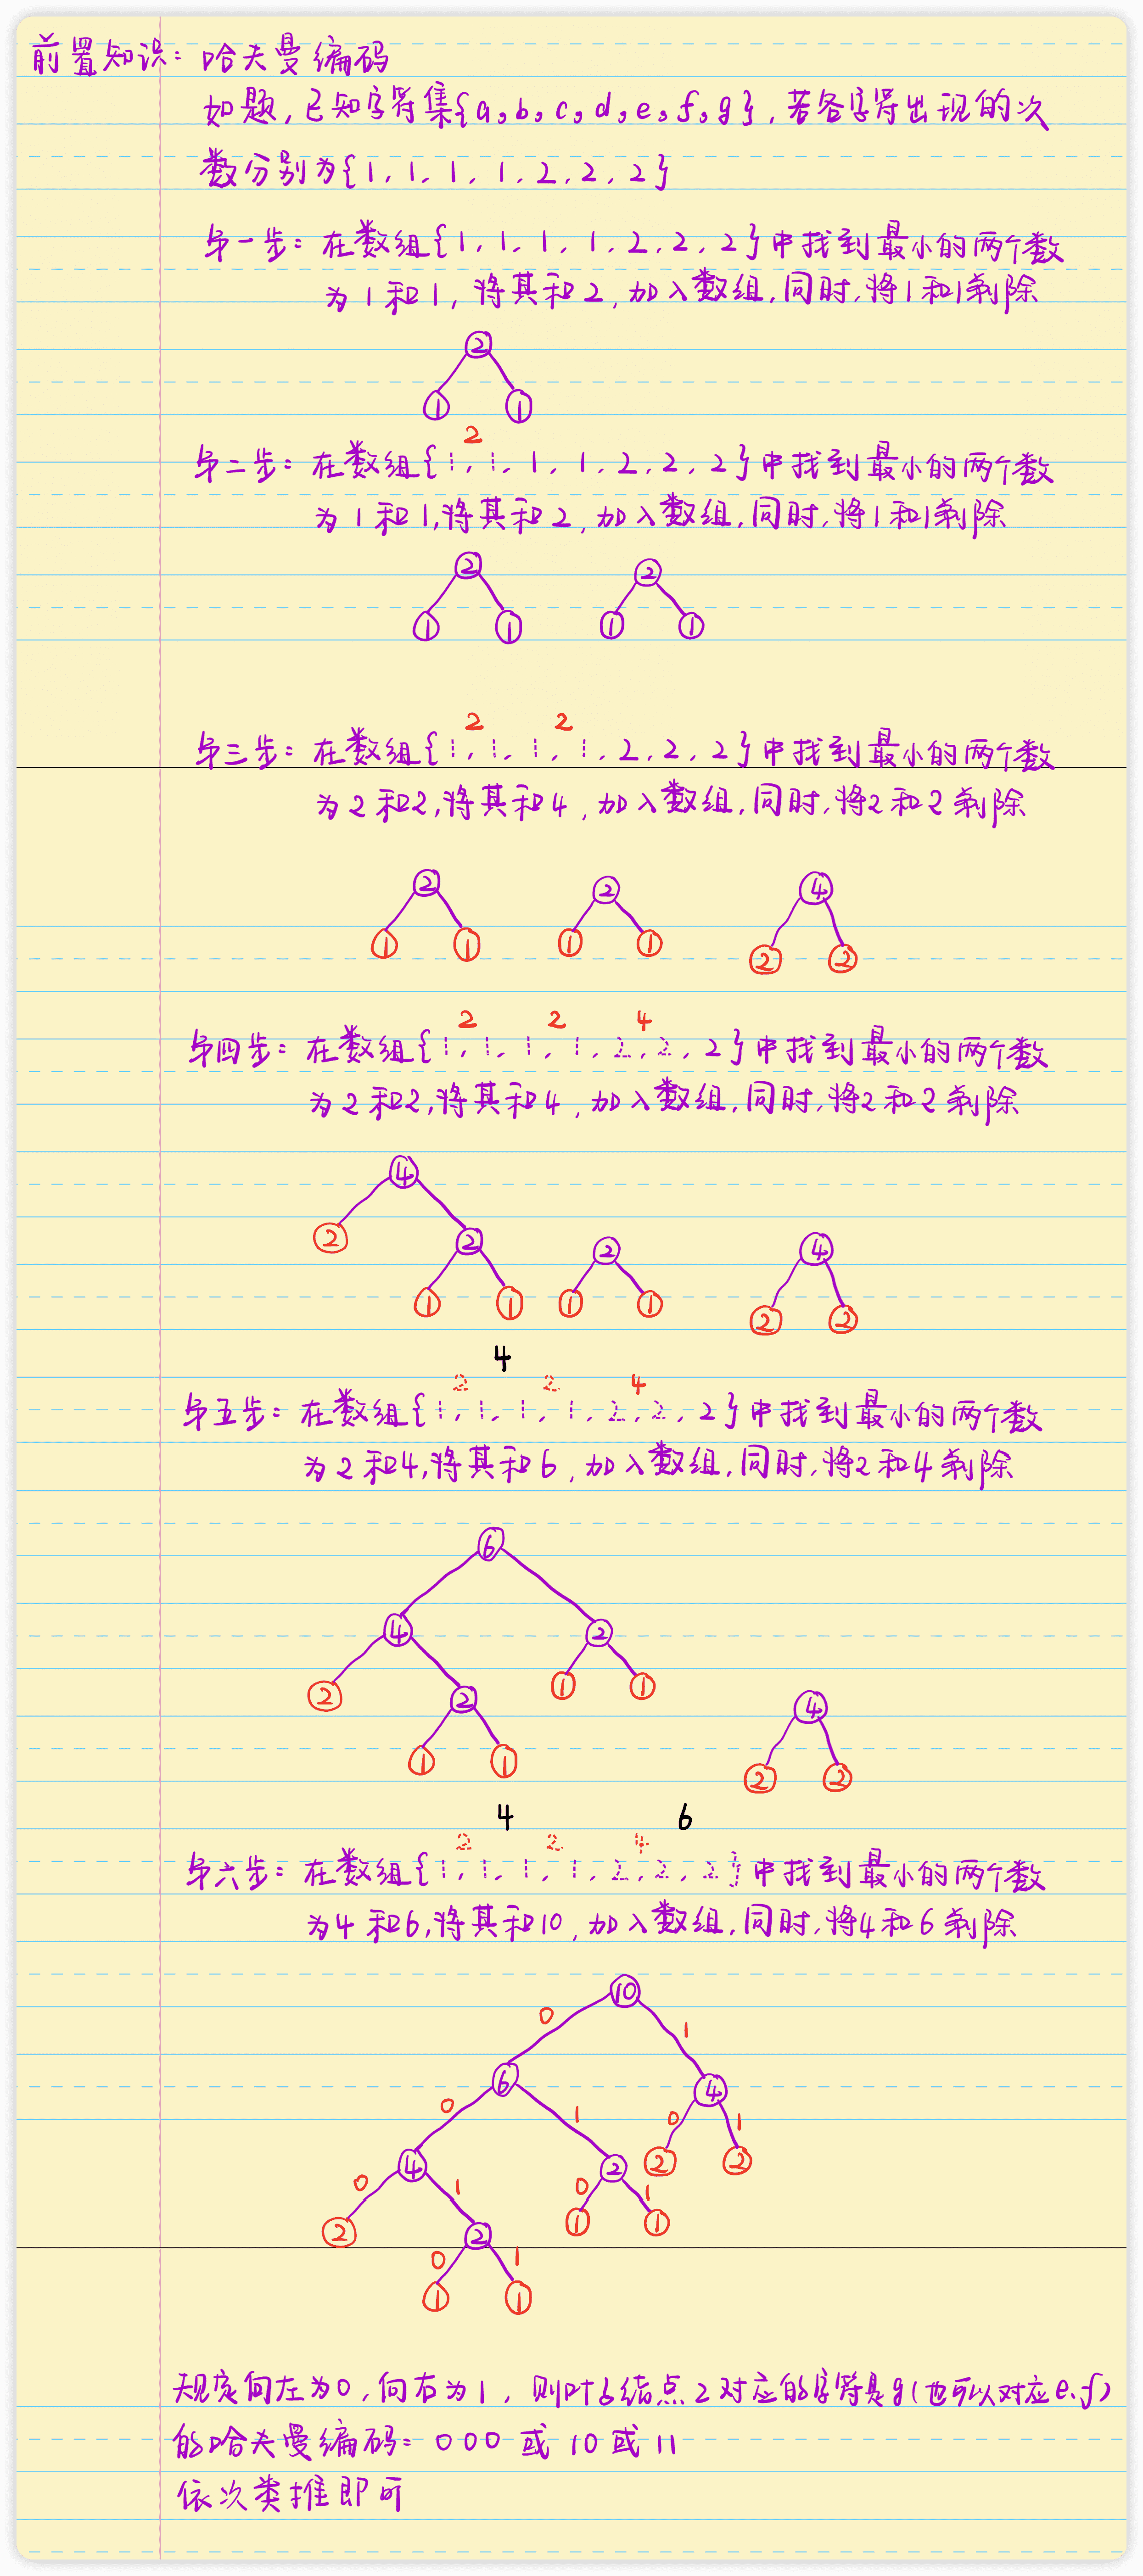 前置知识：哈夫曼编码
如题，已知字符集{a,b,c,d,e,f,g}，若各字符出现的次
数分别为{1、1、1、1、2、2、2}
第一步：在数组{1、1、1、1、2、2、2}中找到最小的两个数
为1和1，将其和2，加入数组，同时，将1和1剔除
2
1 1
2
第二步：在数组{1、1、1、1、2、2、2}中找到最小的两个数
为1和1，将其和2，加入数组，同时，将1和1剔除
2 2
1 1 1 1
2 2
第三步：在数组{1、1、1、1、2、2、2}中找到最小的两个数
为2和2，将其和4，加入数组，同时，将2和2剔除
2 2 4
1 1 1 1 2 2
2 2 4
第四步：在数组{1、1、1、1、2、2、2}中找到最小的两个数
为2和2，将其和4，加入数组，同时，将2和2剔除
4
2 2 2 4
1 1 1 1 2 2
4
2 2 4
第五步：在数组{1、1、1、1、2、2、2}中找到最小的两个数
为2和4，将其和6，加入数组，同时，将2和4剔除
6
4 2
2 2 1 1 4
1 1 2 2
4 6
2 2 4
第六步：在数组{1、1、1、1、2、2、2}中找到最小的两个数
为4和6，将其和10，加入数组，同时，将4和6剔除
10
0 1
6 4
0 1 0 1
4 2 2 2
0 1 0 1
2 2 1 1
0 1
1 1
规定向左为0，向右为1，则叶子结点2对应的字符是g(也可以对应e、f)
的哈夫曼编码：000或10或11
依次类推即可